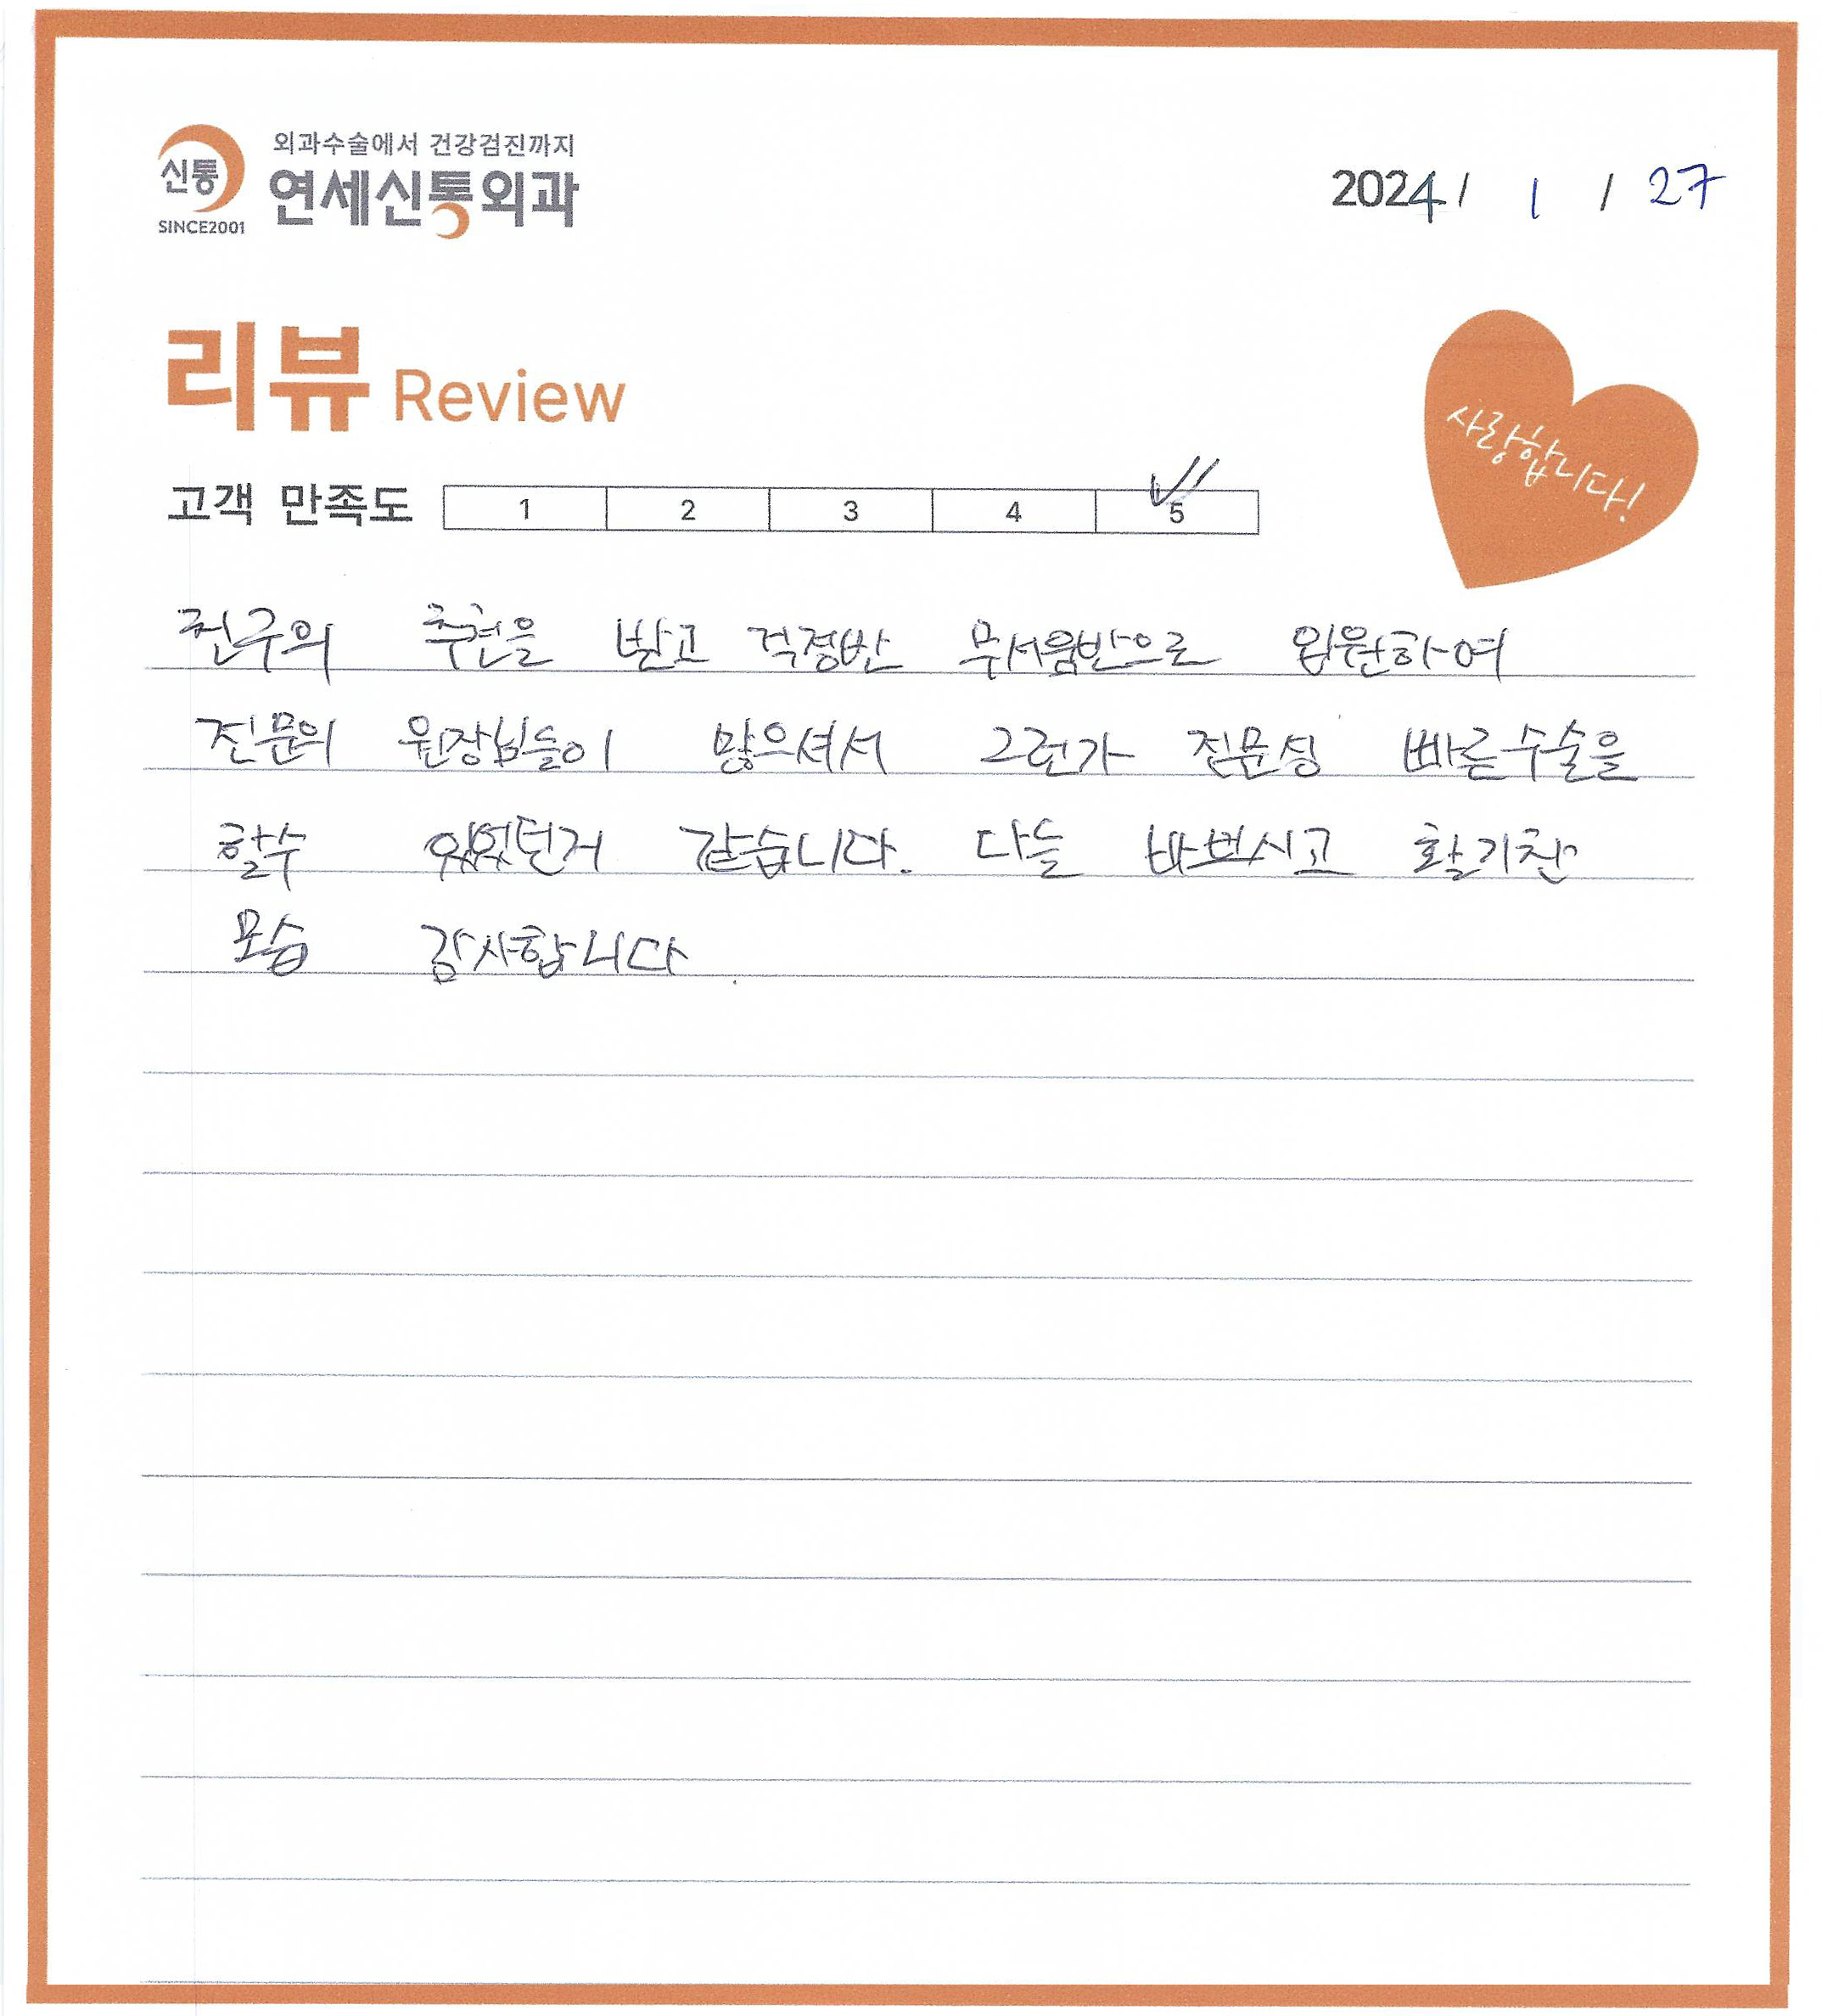 외과수술에서 건강검진까지
신통 연세신통외과
SINCE2001
2024 / 1 / 27
리뷰 Review
사랑합니다!
고객 만족도 1 2 3 4 5
친구의 추천을 받고 걱정반 무서움반으로 입원하여
전문의 원장님들이 많으셔서 그런가 전문성 빠른수술을
할수 있었던거 같습니다. 다들 바쁘시고 활기찬
모습 감사합니다.